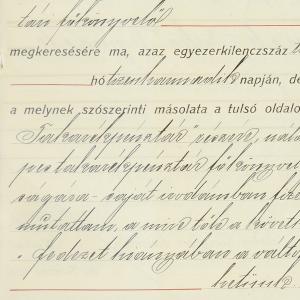 tán főkönyvelő
megkeresésére ma, azaz egyezerkilenczszáz
hó tizenharmadik napján, dé
a melynek szószerinti másolata a tulsó oldalo
Takarékpénztár" részvé
pestakarékpénztár főkönyvel
ságára - saját irodámban
mutattam, a mire tőle a követ
fedezet hiányában a válto